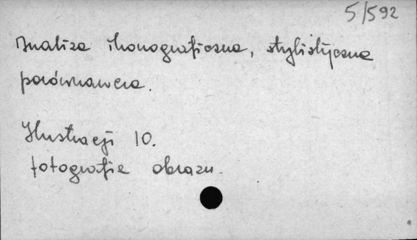 5/592
Analiza ikonograficzna, stylistyczna
porównawcza.
Ilustracji 10.
fotografie obrazu.